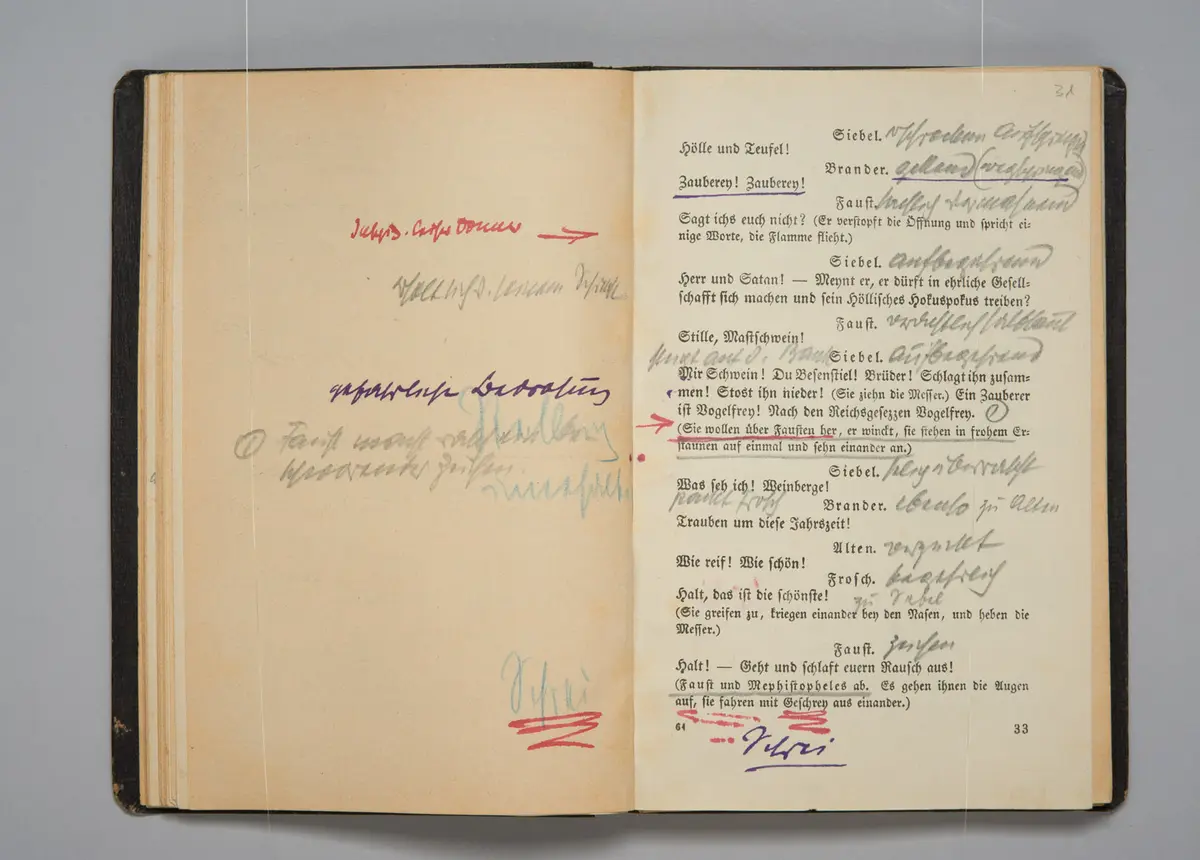 gefährliche Bedrohung
① Faust macht
Zeichen.
Schrei
31
Siebel.
Hölle und Teufel!
Brander. gellend (wegspringend)
Zauberey! Zauberey!
Faust.
Sagt ichs euch nicht? (Er verstopft die Öffnung und spricht ei-
nige Worte, die Flamme flieht.)
Siebel. aufbegehrend
Herr und Satan! — Meynt er, er dürft in ehrliche Gesell-
schafft sich machen und sein Höllisches Hokuspokus treiben?
Faust. verächtlich halblaut
Stille, Mastschwein!
Siebel. aufbegehrend
Mir Schwein! Du Besenstiel! Brüder! Schlagt ihn zusam-
men! Stost ihn nieder! (Sie ziehn die Messer.) Ein Zauberer
ist Vogelfrey! Nach den Reichsgesezzen Vogelfrey. ①
(Sie wollen über Fausten her, er winckt, sie stehen in frohem Er-
staunen auf einmal und sehn einander an.)
Siebel. selig überrascht
Was seh ich! Weinberge!
packt Frosch
Brander. ebenso zu Alten
Trauben um diese Jahrszeit!
Alten. verzückt
Wie reif! Wie schön!
Frosch. begehrlich
Halt, das ist die schönste! zu Siebel
(Sie greifen zu, kriegen einander bey den Nasen, und heben die
Messer.)
Faust. Zeichen
Halt! — Geht und schlaft euern Rausch aus!
(Faust und Mephistopheles ab. Es gehen ihnen die Augen
auf, sie fahren mit Geschrey aus einander.)
64 33
Schrei